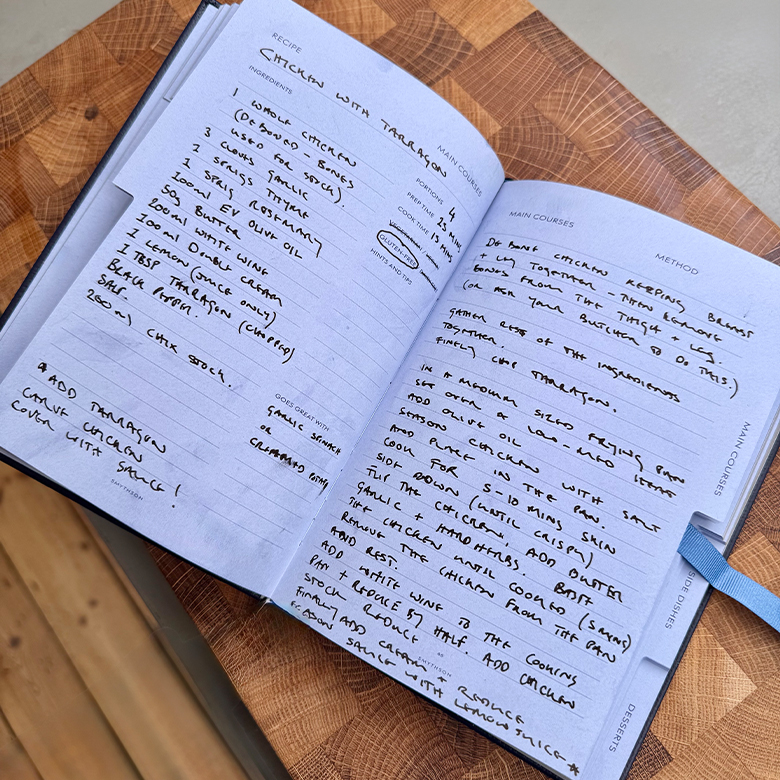 RECIPE
CHICKEN WITH TARRAGON
MAIN COURSES
INGREDIENTS
1 WHOLE CHICKEN
(DEBONED - BONES
USED FOR STOCK).
3 CLOVES GARLIC
2 SPRIGS THYME
1 SPRIG ROSEMARY
100ml EV OLIVE OIL
50g BUTTER
200ml WHITE WINE
100ml DOUBLE CREAM
1 LEMON (JUICE ONLY)
1 TBSP TARRAGON (CHOPPED)
BLACK PEPPER.
SALT.
200ml CHIX STOCK.
PORTIONS 4
PREP TIME 25 MINS
COOK TIME 15 MINS
GLUTEN-FREE
HINTS AND TIPS
GOES GREAT WITH
GARLIC SPINACH
OR
* ADD TARRAGON
CARVE CHICKEN
COVER WITH SAUCE!
SMYTHSON
MAIN COURSES
METHOD
DE BONE CHICKEN KEEPING BREAST
+ LEG TOGETHER - THEN REMOVE
BONES FROM THE THIGH + LEG.
(OR ASK YOUR BUTCHER TO DO THIS.)
GATHER REST OF THE INGREDIENTS
TOGETHER.
FINELY CHOP TARRAGON.
IN A MEDIUM SIZED FRYING PAN
SET OVER A LOW-MED HEAT
ADD OLIVE OIL
SEASON CHICKEN WITH SALT
AND PLACE IN THE PAN.
COOK FOR 5-10 MINS SKIN
SIDE DOWN (UNTIL CRISPY)
FLIP THE CHICKEN. ADD BUTTER
GARLIC + HARD HERBS. BAST
THE CHICKEN UNTIL COOKED (5 MINS)
REMOVE THE CHICKEN FROM THE PAN
AND REST.
ADD WHITE WINE TO THE COOKING
PAN + REDUCE BY HALF. ADD CHICKEN
STOCK REDUCE
FINALLY ADD CREAM + REDUCE
SEASON SAUCE WITH LEMON JUICE *
SMYTHSON
MAIN COURSES
SIDE DISHES
DESSERTS